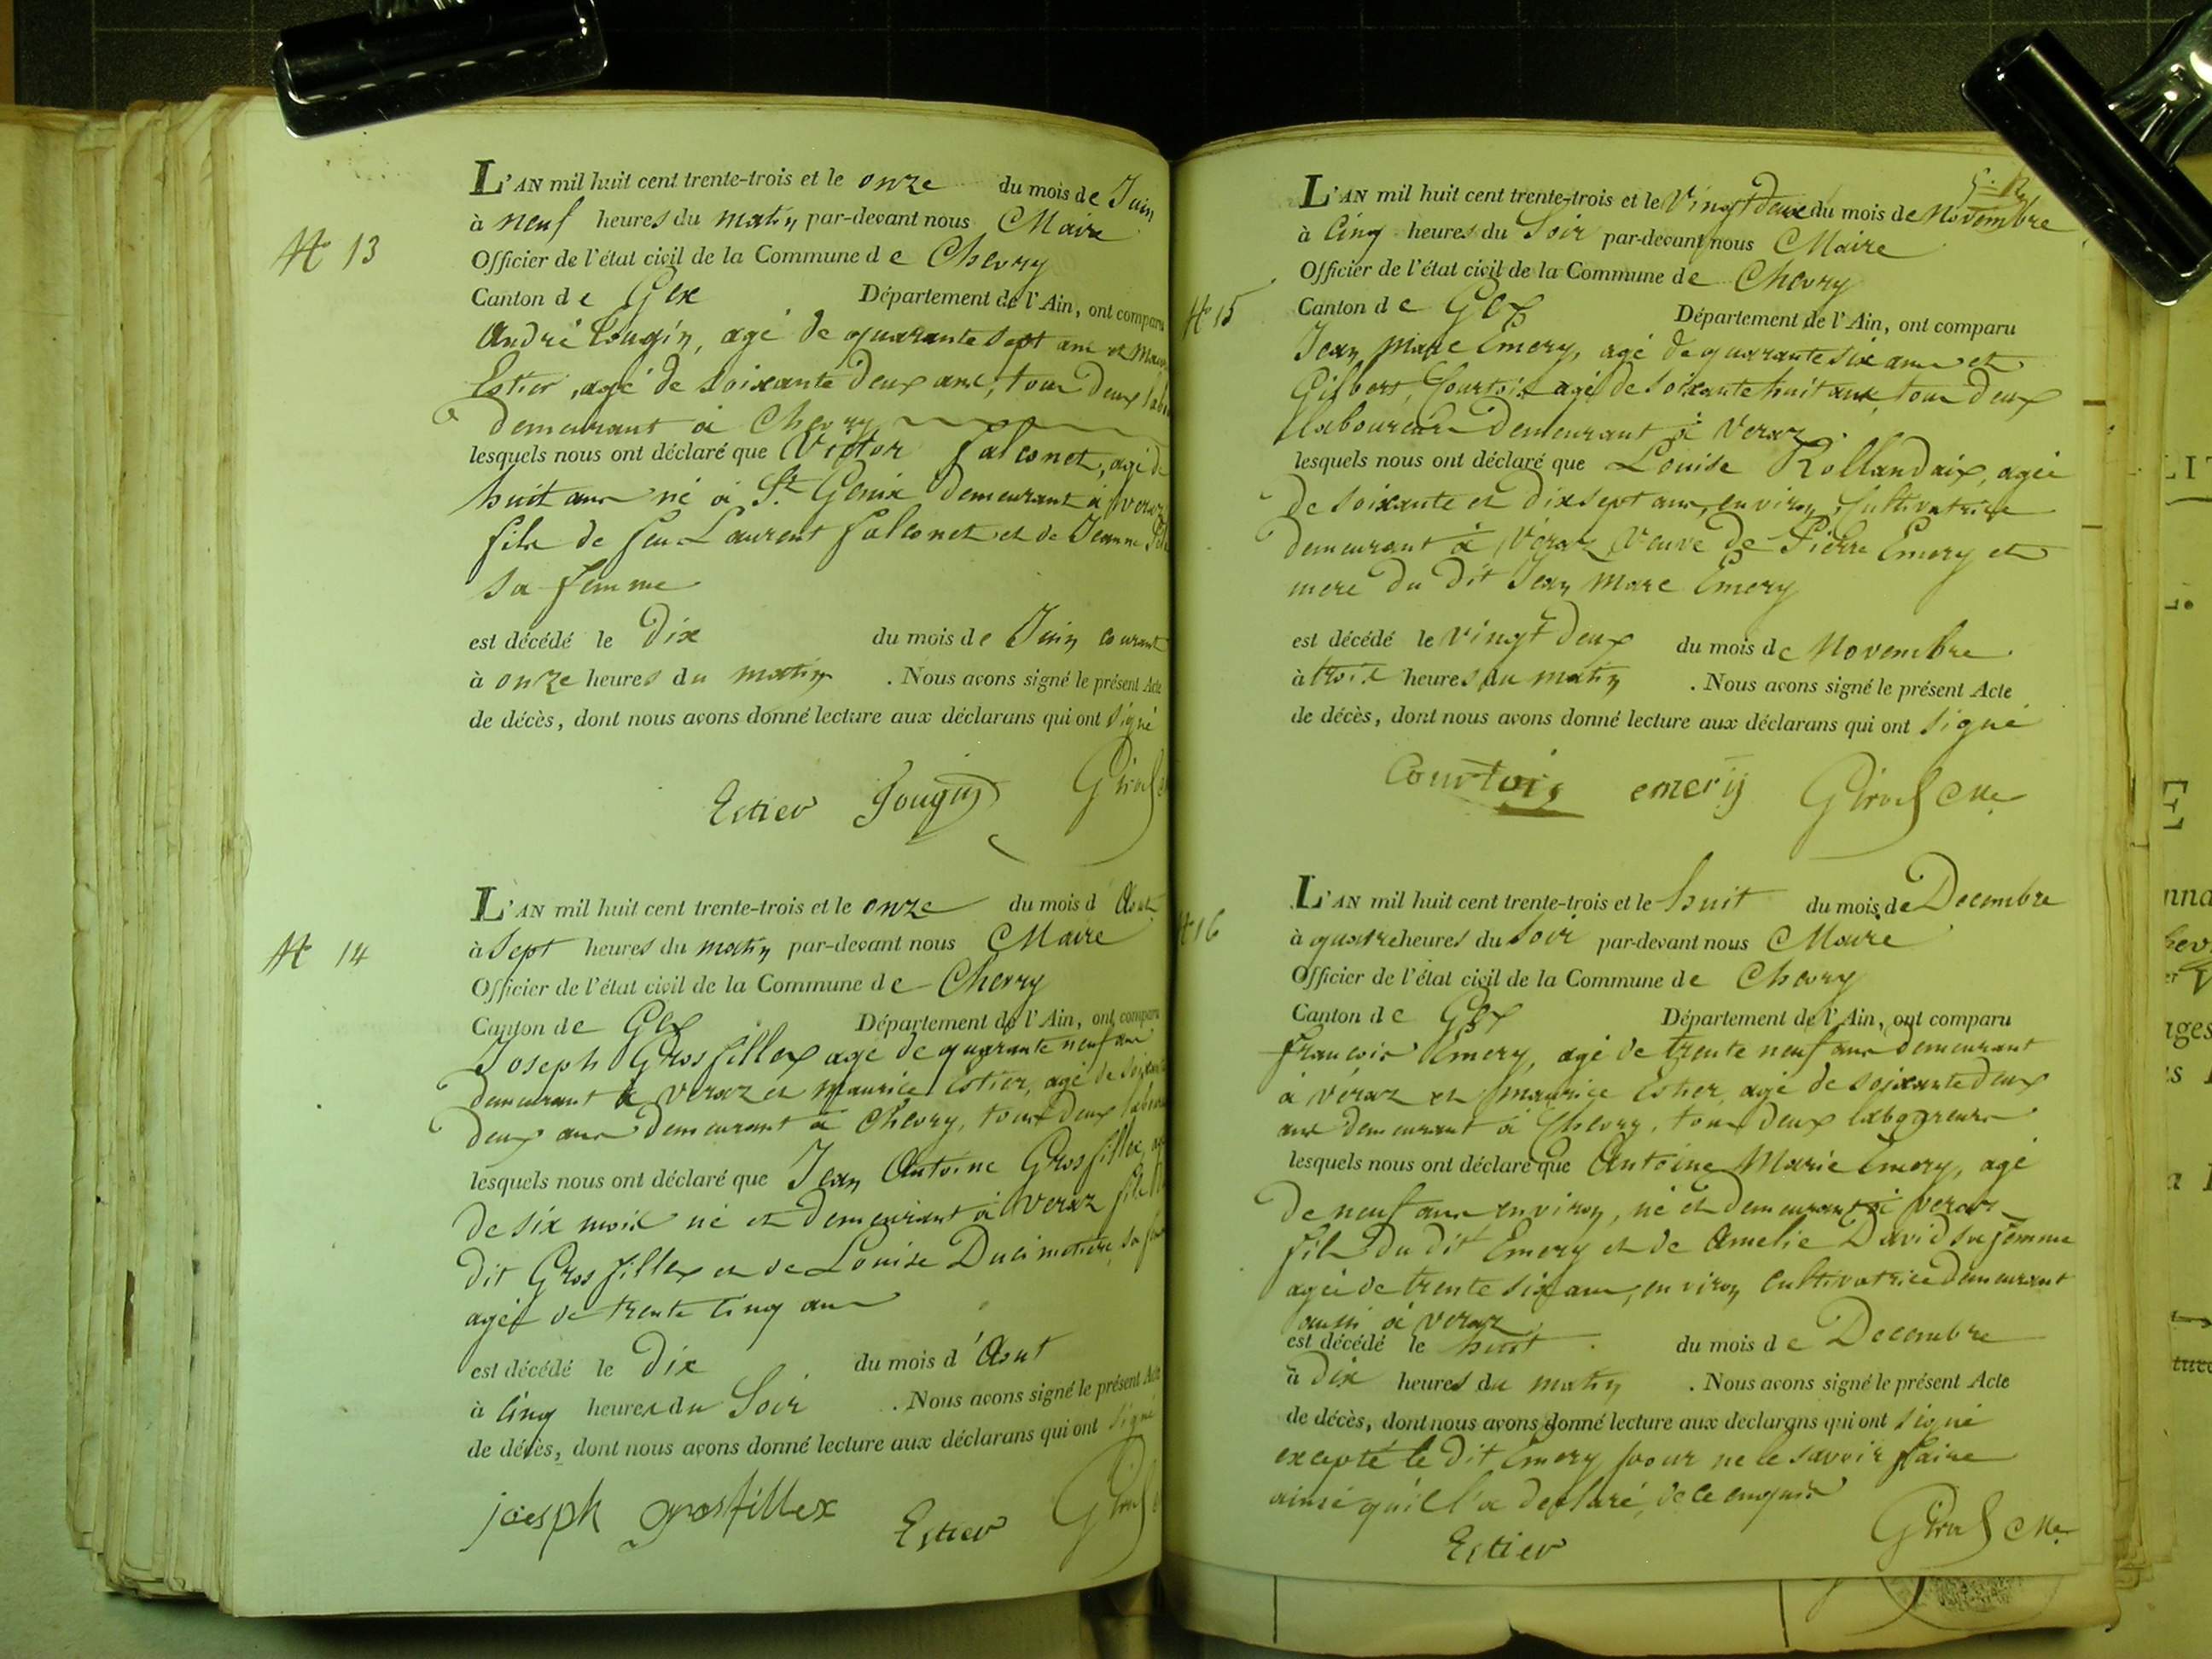 N° 13
L'AN mil huit cent trente-trois et le onze du mois de Juin
à neuf heures du matin par-devant nous Maire
Officier de l'état civil de la Commune de Chevry
Canton de Gex Département de l'Ain, ont comparu
André Gougin, agé de quarante sept ans et
Estier, agé de soixante deux ans, tous deux
demeurant à Chevry
lesquels nous ont déclaré que Victor Falconet, agé de
huit ans né à St Genix demeurant à veraz
fils de feu Laurent Falconet et de Jeanne
sa femme
est décédé le dix du mois de Juin courant
à onze heures du matin . Nous avons signé le présent Acte
de décès, dont nous avons donné lecture aux déclarans qui ont signé
Estier Gougin
N° 14
L'AN mil huit cent trente-trois et le onze du mois d Aout
à Sept heures du matin par-devant nous Maire
Officier de l'état civil de la Commune de Chevry
Canton de Gex Département de l'Ain, ont comparu
Joseph Grosfillex agé de quarante neuf ans
demeurant à veraz et Maurice Estier, agé de soixante
deux ans demeurant à Chevry, tous deux
lesquels nous ont déclaré que Jean Antoine Grosfillex,
de six mois né et demeurant à Veraz fils
dit Grosfillex et de Louise Ducimetiere, sa
agée de trente cinq ans
est décédé le dix du mois d'Aout
à cinq heures du Soir . Nous avons signé le présent Acte
de décès, dont nous avons donné lecture aux déclarans qui ont signé
joesph grosfillex Estier
L'AN mil huit cent trente-trois et le vingt deux du mois de Novembre
à cinq heures du Soir par-devant nous Maire
Officier de l'état civil de la Commune de Chevry
N° 15
Canton de Gex Département de l'Ain, ont comparu
Jean Marc Emery, agé de quarante six ans et
Gilbert Courtois agé de soixante huit ans, tous deux
laboureurs demeurant à Veraz
lesquels nous ont déclaré que Louise Rollandaix, agée
de soixante et dix sept ans, environ, cultivatrice
demeurant à Véraz Veuve de Pierre Emery et
mere du dit Jean Marc Emery
est décédé le vingt deux du mois de Novembre
à trois heures du matin . Nous avons signé le présent Acte
de décès, dont nous avons donné lecture aux déclarans qui ont signé
Courtois emery
L'AN mil huit cent trente-trois et le huit du mois de Decembre
N° 16
à quatre heures du Soir par-devant nous Maire
Officier de l'état civil de la Commune de Chevry
Canton de Gex Département de l'Ain, ont comparu
François Emery, agé de trente neuf ans demeurant
à véraz et Maurice Estier, agé de soixante deux
ans demeurant à Chevry, tous deux laboureurs
lesquels nous ont déclaré que Antoine Marie Emery, agé
de neuf ans environ, né et demeurant à veraz
fils du dit Emery et de Amelie David sa femme
agée de trente six ans, environ cultivatrice demeurant
aussi à veraz
est décédé le huit du mois de Decembre
à Dix heures du matin . Nous avons signé le présent Acte
de décès, dont nous avons donné lecture aux declarans qui ont signé
excepté le dit Emery pour ne le savoir faire
ainsi qu'il l'a declaré, de ce enquis
Estier